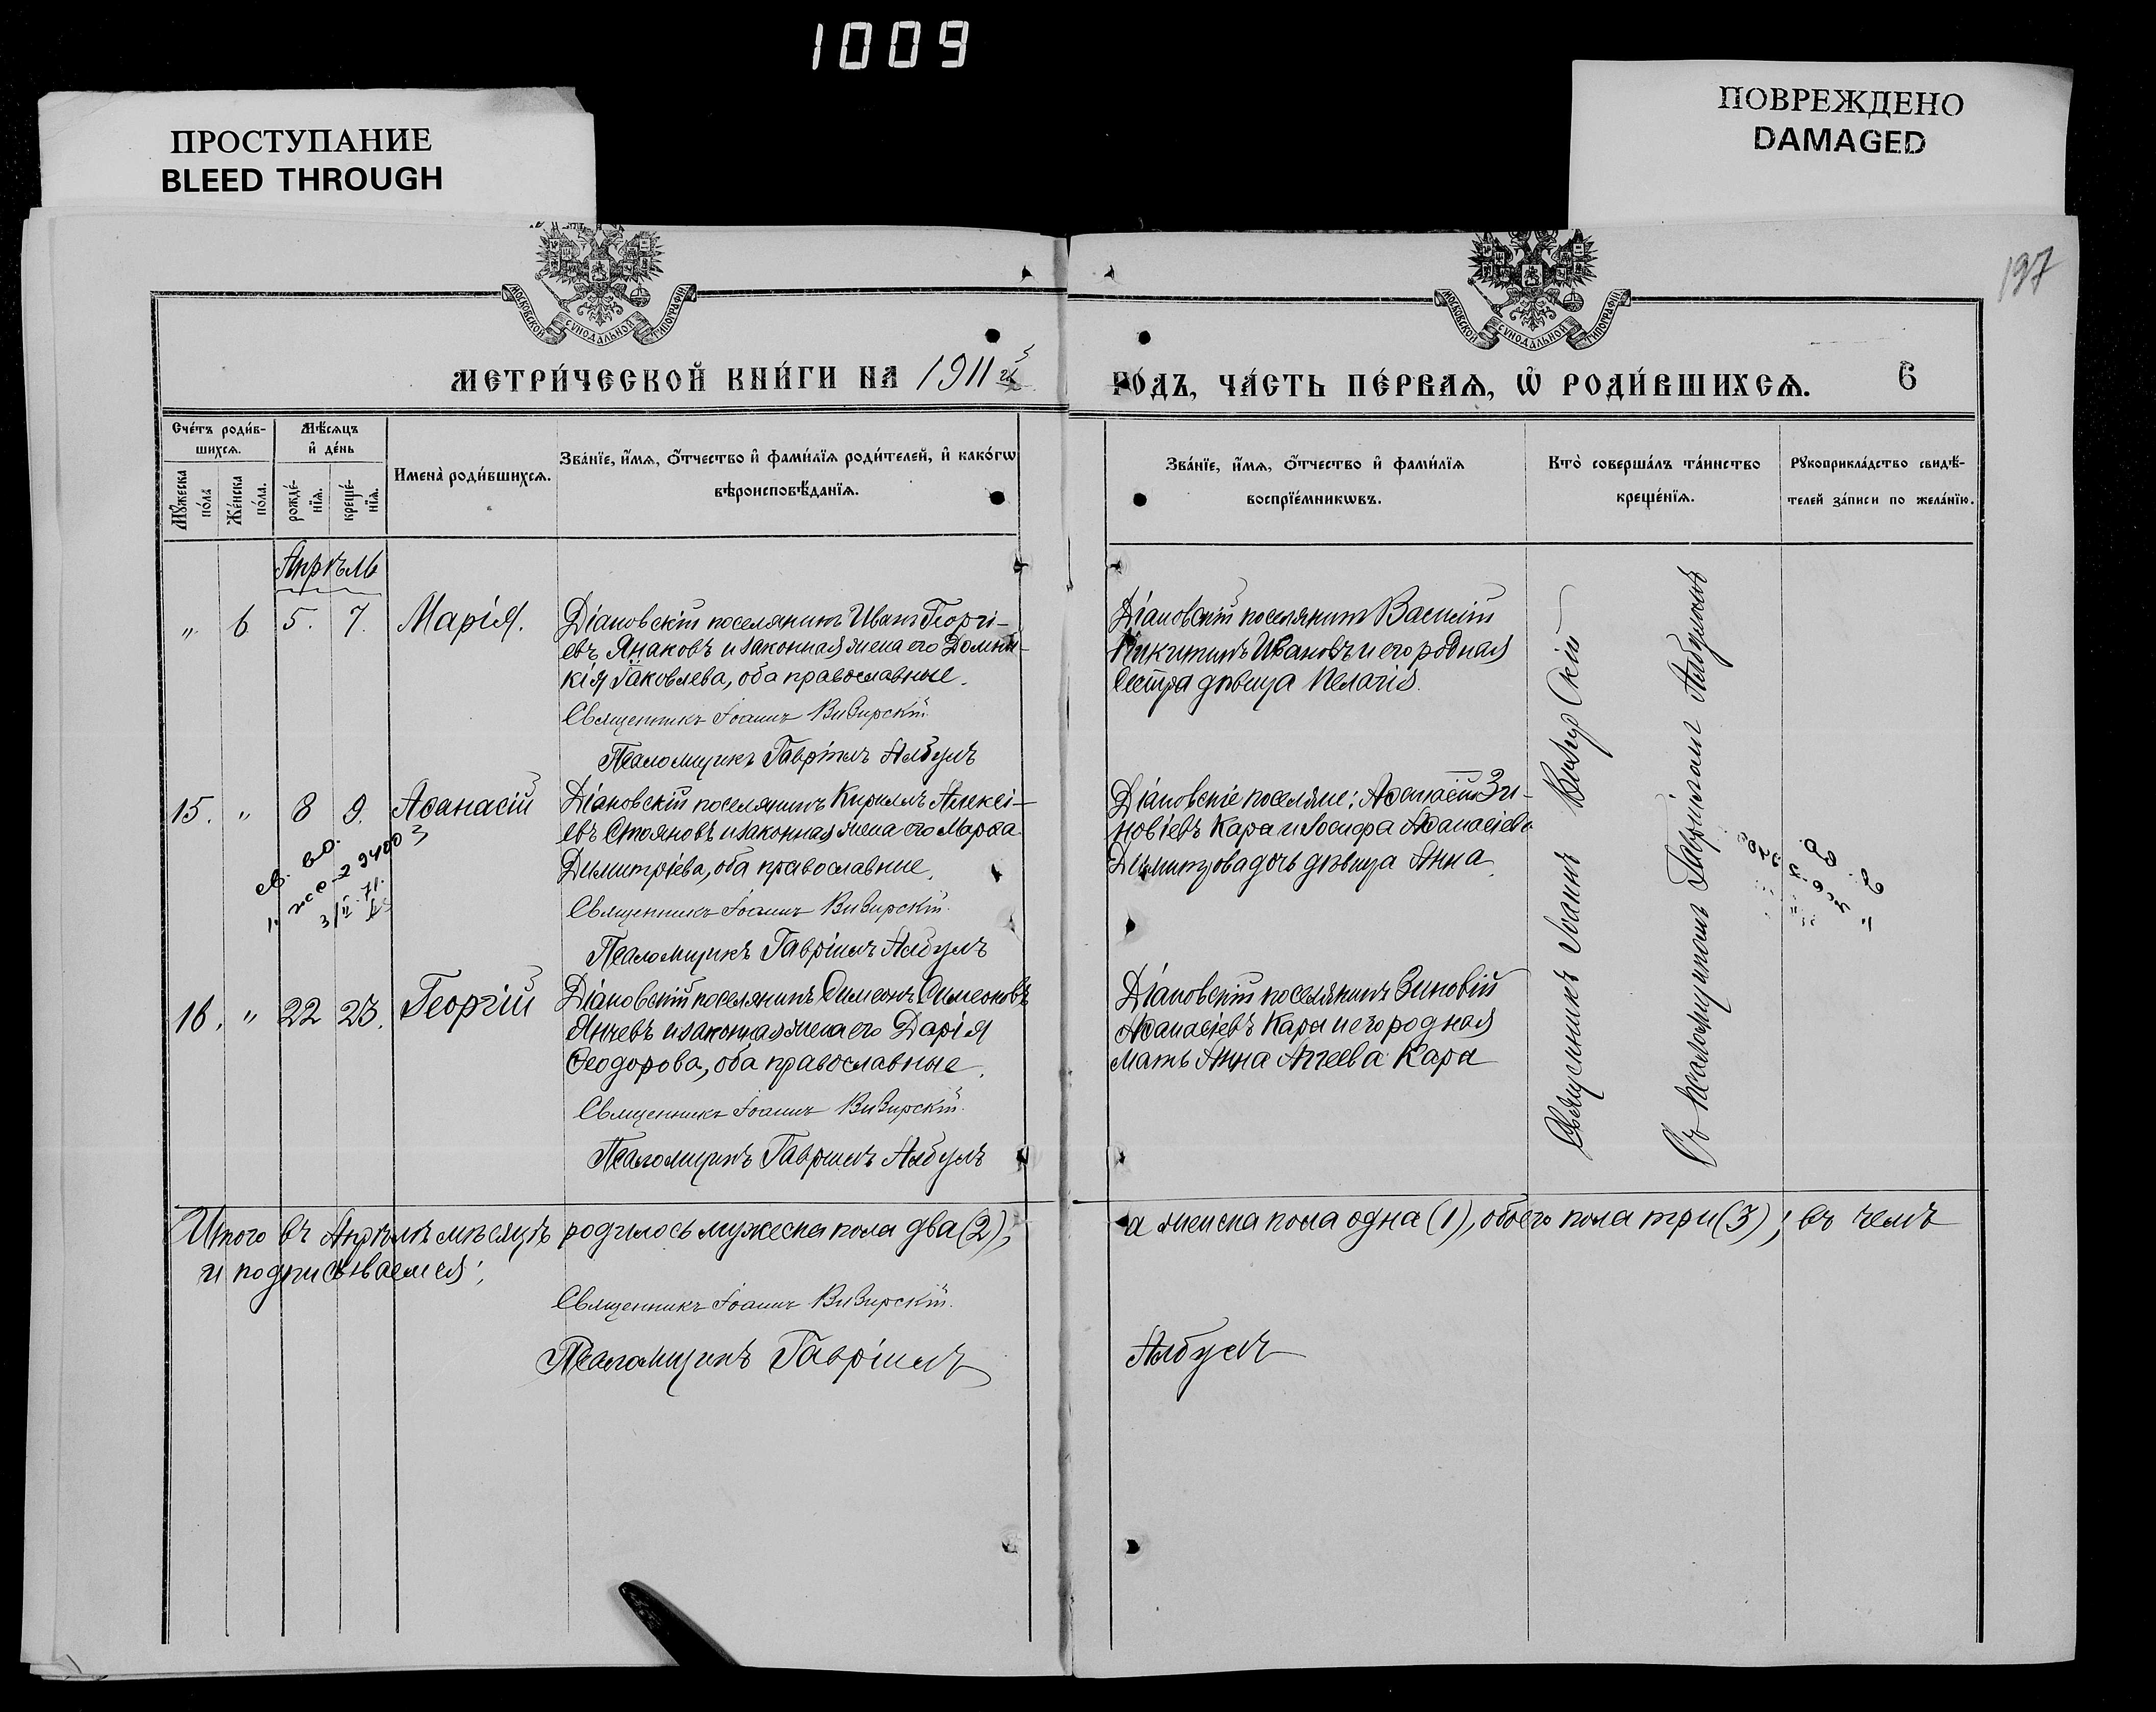 1009
ПРОСТУПАНИЕ
BLEED THROUGH
ПОВРЕЖДЕНО
DAMAGED
197
МОСКОВСКОЙ СУНОДАЛЬНОЙ ТИПОГРАФІИ
МОСКОВСКОЙ СУНОДАЛЬНОЙ ТИПОГРАФІИ
МЕТРИ́ЧЕСКОЙ КНИ́ГИ НА 1911й
ГО́ДЪ, ЧА́СТЬ ПЕ́РВАѦ, Ѡ РОДИ́ВШИХСѦ.
6
Сче́тъ роди́в-
шихсѧ.
Мѣ́сѧцъ
и де́нь
Мꙋ́жеска
по́ла
Же́нска
по́ла.
рожде́-
нїѧ.
креще́-
нїѧ.
Имена̀ роди́вшихсѧ.
Зва́нїе, и́мѧ, о́тчество и фами́лїѧ роди́телей, и како́гѡ
вѣроисповѣ́данїѧ.
Зва́нїе, и́мѧ, о́тчество и фами́лїѧ
воспрїе́мникѡвъ.
Кто̀ соверша́лъ та́инство
креще́нїѧ.
Рꙋкоприкла́дство свидѣ́-
телей за́писи по жела́нїю.
Апрѣль
" 6 5. 7. Марія.
Діановскій поселянинъ Иванъ Георгі-
евъ Янаковъ и законная жена его Домни-
кія Іаковлева, оба православные.
Священникъ Іоаннъ Визирскій.
Псаломщикъ Гавріилъ Албулъ
Діановскій поселянинъ Василій
Никитинъ Ивановъ и его родная
сестра дѣвица Пелагія.
15. " 8 9. Аѳанасій
Діановскій поселянинъ Кириллъ Алексі-
евъ Стояновъ и законная жена его Марѳа
Димитріева, оба православные.
Священникъ Іоаннъ Визирскій.
Псаломщикъ Гавріилъ Албулъ
Діановскіе поселяне: Аѳанасій Зи-
новіевъ Кара и Іосифа Аѳанасіева
Димитрова дочь дѣвица Анна.
16. " 22 23. Георгій
Діановскій поселянинъ Симеонъ Симеоновъ
Янчевъ и законная жена его Дарія
Ѳеодорова, оба православные.
Священникъ Іоаннъ Визирскій.
Псаломщикъ Гавріилъ Албулъ
Діановскій поселянинъ Зиновій
Аѳанасіевъ Кара и его родная
мать Анна Агеева Кара
Священникъ Іоаннъ Визирскій
Съ псаломщикомъ Гавріиломъ Албуломъ
Итого въ Апрѣлѣ мѣсяцѣ родилось мужеска пола два (2),
а женска пола одна (1), обоего пола три (3); въ чемъ
и подписываемся:
Священникъ Іоаннъ Визирскій.
Псаломщикъ Гавріилъ
Албулъ